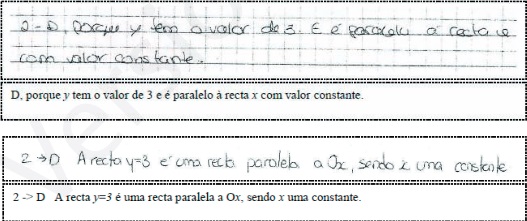 2-D, porque y tem o valor de 3. E é paralelo à recta x
com valor constante.
D, porque y tem o valor de 3 e é paralelo à recta x com valor constante.
2 → D A recta y=3 é uma recta paralela a Ox, sendo x uma constante
2 -> D A recta y=3 é uma recta paralela a Ox, sendo x uma constante.